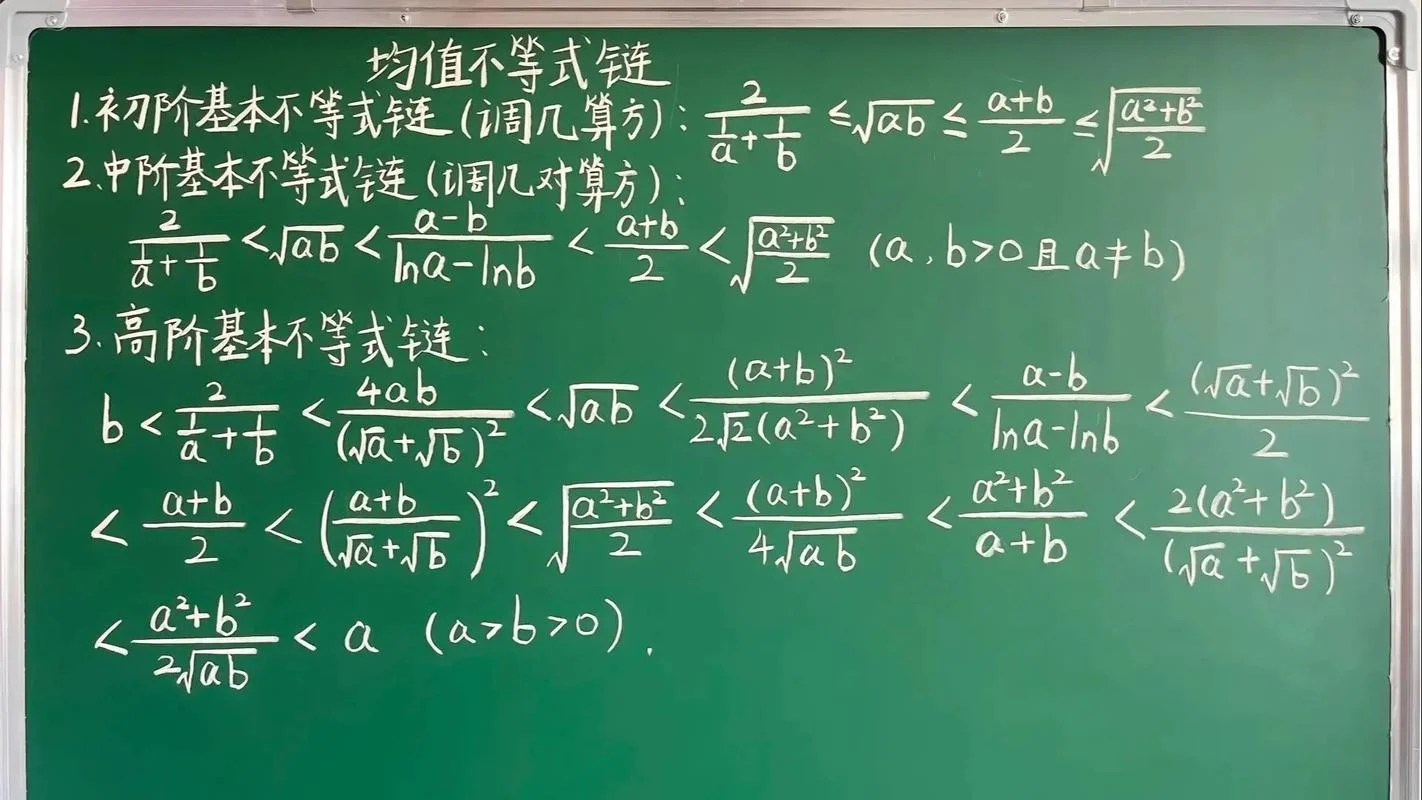 均值不等式链
1.初阶基本不等式链(调几算方): \frac{2}{\frac{1}{a}+\frac{1}{b}} ≤ \sqrt{ab} ≤ \frac{a+b}{2} ≤ \sqrt{\frac{a²+b²}{2}}
2.中阶基本不等式链(调几对算方):
\frac{2}{\frac{1}{a}+\frac{1}{b}} < \sqrt{ab} < \frac{a-b}{lna-lnb} < \frac{a+b}{2} < \sqrt{\frac{a²+b²}{2}} (a,b>0且a≠b)
3.高阶基本不等式链:
b < \frac{2}{\frac{1}{a}+\frac{1}{b}} < \frac{4ab}{(\sqrt{a}+\sqrt{b})²} < \sqrt{ab} < \frac{(a+b)²}{2\sqrt{2}(a²+b²)} < \frac{a-b}{lna-lnb} < \frac{(\sqrt{a}+\sqrt{b})²}{2}
< \frac{a+b}{2} < (\frac{a+b}{\sqrt{a}+\sqrt{b}})² < \sqrt{\frac{a²+b²}{2}} < \frac{(a+b)²}{4\sqrt{ab}} < \frac{a²+b²}{a+b} < \frac{2(a²+b²)}{(\sqrt{a}+\sqrt{b})²}
< \frac{a²+b²}{2\sqrt{ab}} < a (a>b>0).